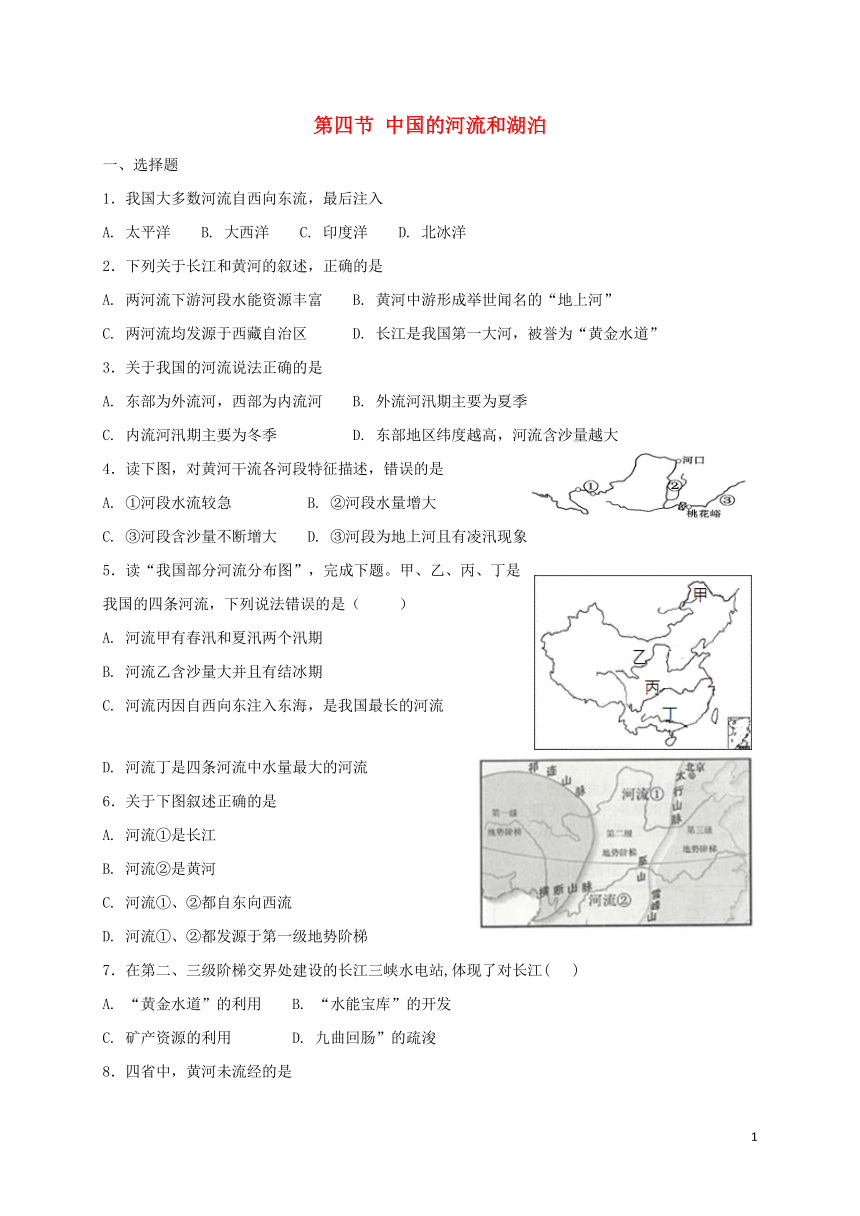 第四节 中国的河流和湖泊
一、选择题
1．我国大多数河流自西向东流，最后注入
A. 太平洋 B. 大西洋 C. 印度洋 D. 北冰洋
2．下列关于长江和黄河的叙述，正确的是
A. 两河流下游河段水能资源丰富 B. 黄河中游形成举世闻名的“地上河”
C. 两河流均发源于西藏自治区 D. 长江是我国第一大河，被誉为“黄金水道”
3．关于我国的河流说法正确的是
A. 东部为外流河，西部为内流河 B. 外流河汛期主要为夏季
C. 内流河汛期主要为冬季 D. 东部地区纬度越高，河流含沙量越大
4．读下图，对黄河干流各河段特征描述，错误的是
A. ①河段水流较急 B. ②河段水量增大
C. ③河段含沙量不断增大 D. ③河段为地上河且有凌汛现象
河口
① ② ③
桃花峪
5．读“我国部分河流分布图”，完成下题。甲、乙、丙、丁是
我国的四条河流，下列说法错误的是（ ）
A. 河流甲有春汛和夏汛两个汛期
B. 河流乙含沙量大并且有结冰期
C. 河流丙因自西向东注入东海，是我国最长的河流
D. 河流丁是四条河流中水量最大的河流
甲
乙
丙
丁
6．关于下图叙述正确的是
A. 河流①是长江
B. 河流②是黄河
C. 河流①、②都自东向西流
D. 河流①、②都发源于第一级地势阶梯
祁连山脉
北京
太行山脉
河流①
第一级
地势阶梯
第二级
地势阶梯
第三级
地势阶梯
巫山
横断山脉
河流②
雪峰山
7．在第二、三级阶梯交界处建设的长江三峡水电站,体现了对长江( )
A. “黄金水道”的利用 B. “水能宝库”的开发
C. 矿产资源的利用 D. 九曲回肠”的疏浚
8．四省中，黄河未流经的是
1